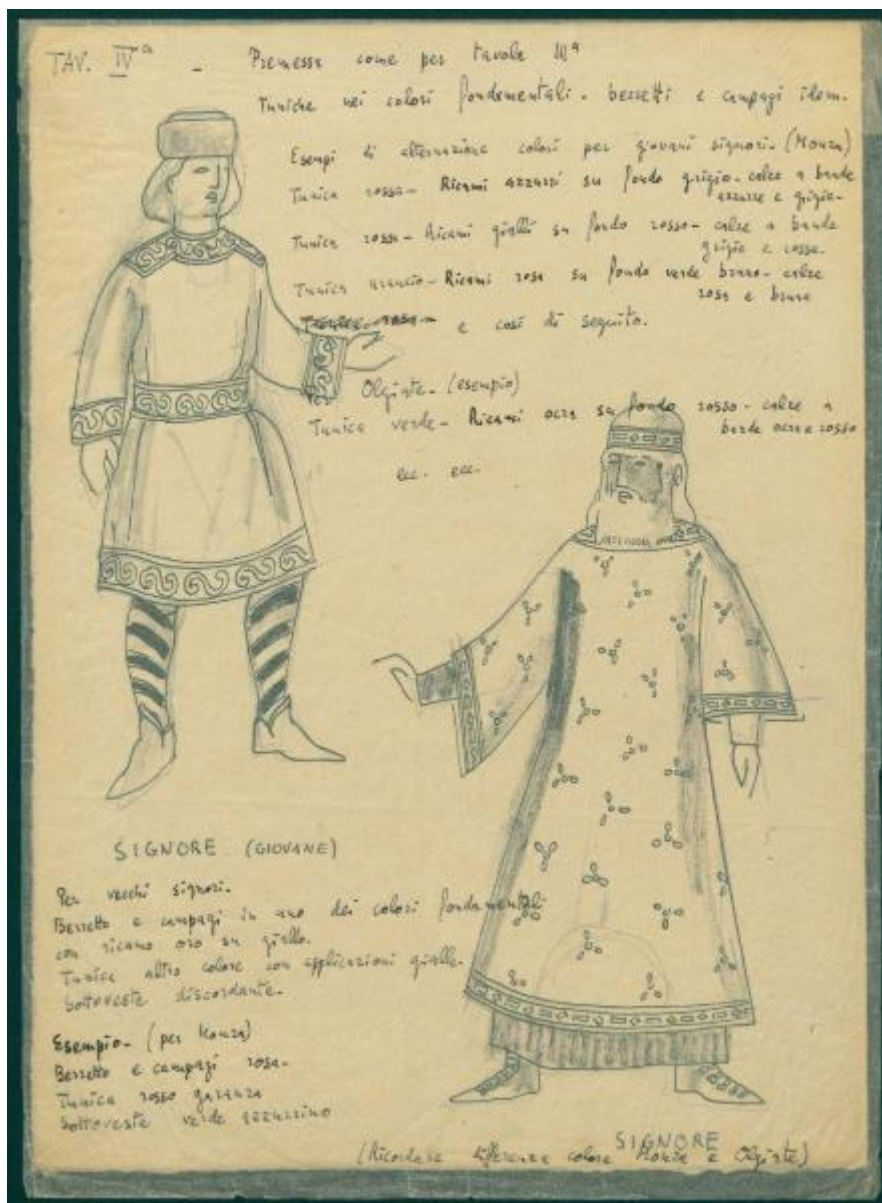 TAV. IVª - Premessa come per tavole IIIª
Tuniche nei colori fondamentali - berretti e campagi idem.
Esempi di alternazione colori per giovani signori - (Monza)
Tunica rossa - Ricami azzurri su fondo grigio - calze a bande
azzurre e grigie -
Tunica rossa - Ricami gialli su fondo rosso - calze a bande
grigie e rosse.
Tunica arancio - Ricami rosa su fondo verde bruno - calze
rosa e brune
e così di seguito.
Per Olginte - (esempio)
Tunica verde - Ricami ocra su fondo rosso - calze a
bande ocra e rosso
ecc. ecc.
SIGNORE (GIOVANE)
Per vecchi signori -
Berretto e campagi in uno dei colori fondamentali
con ricamo oro su giallo.
Tunica altro colore con applicazioni gialle -
Sottoveste discordante -
Esempio - (per Monza)
Berretto e campagi rosa -
Tunica rosso garanza
Sottoveste verde azzurrino
SIGNORE
(Ricordare differenza colore Monza e Olginte)